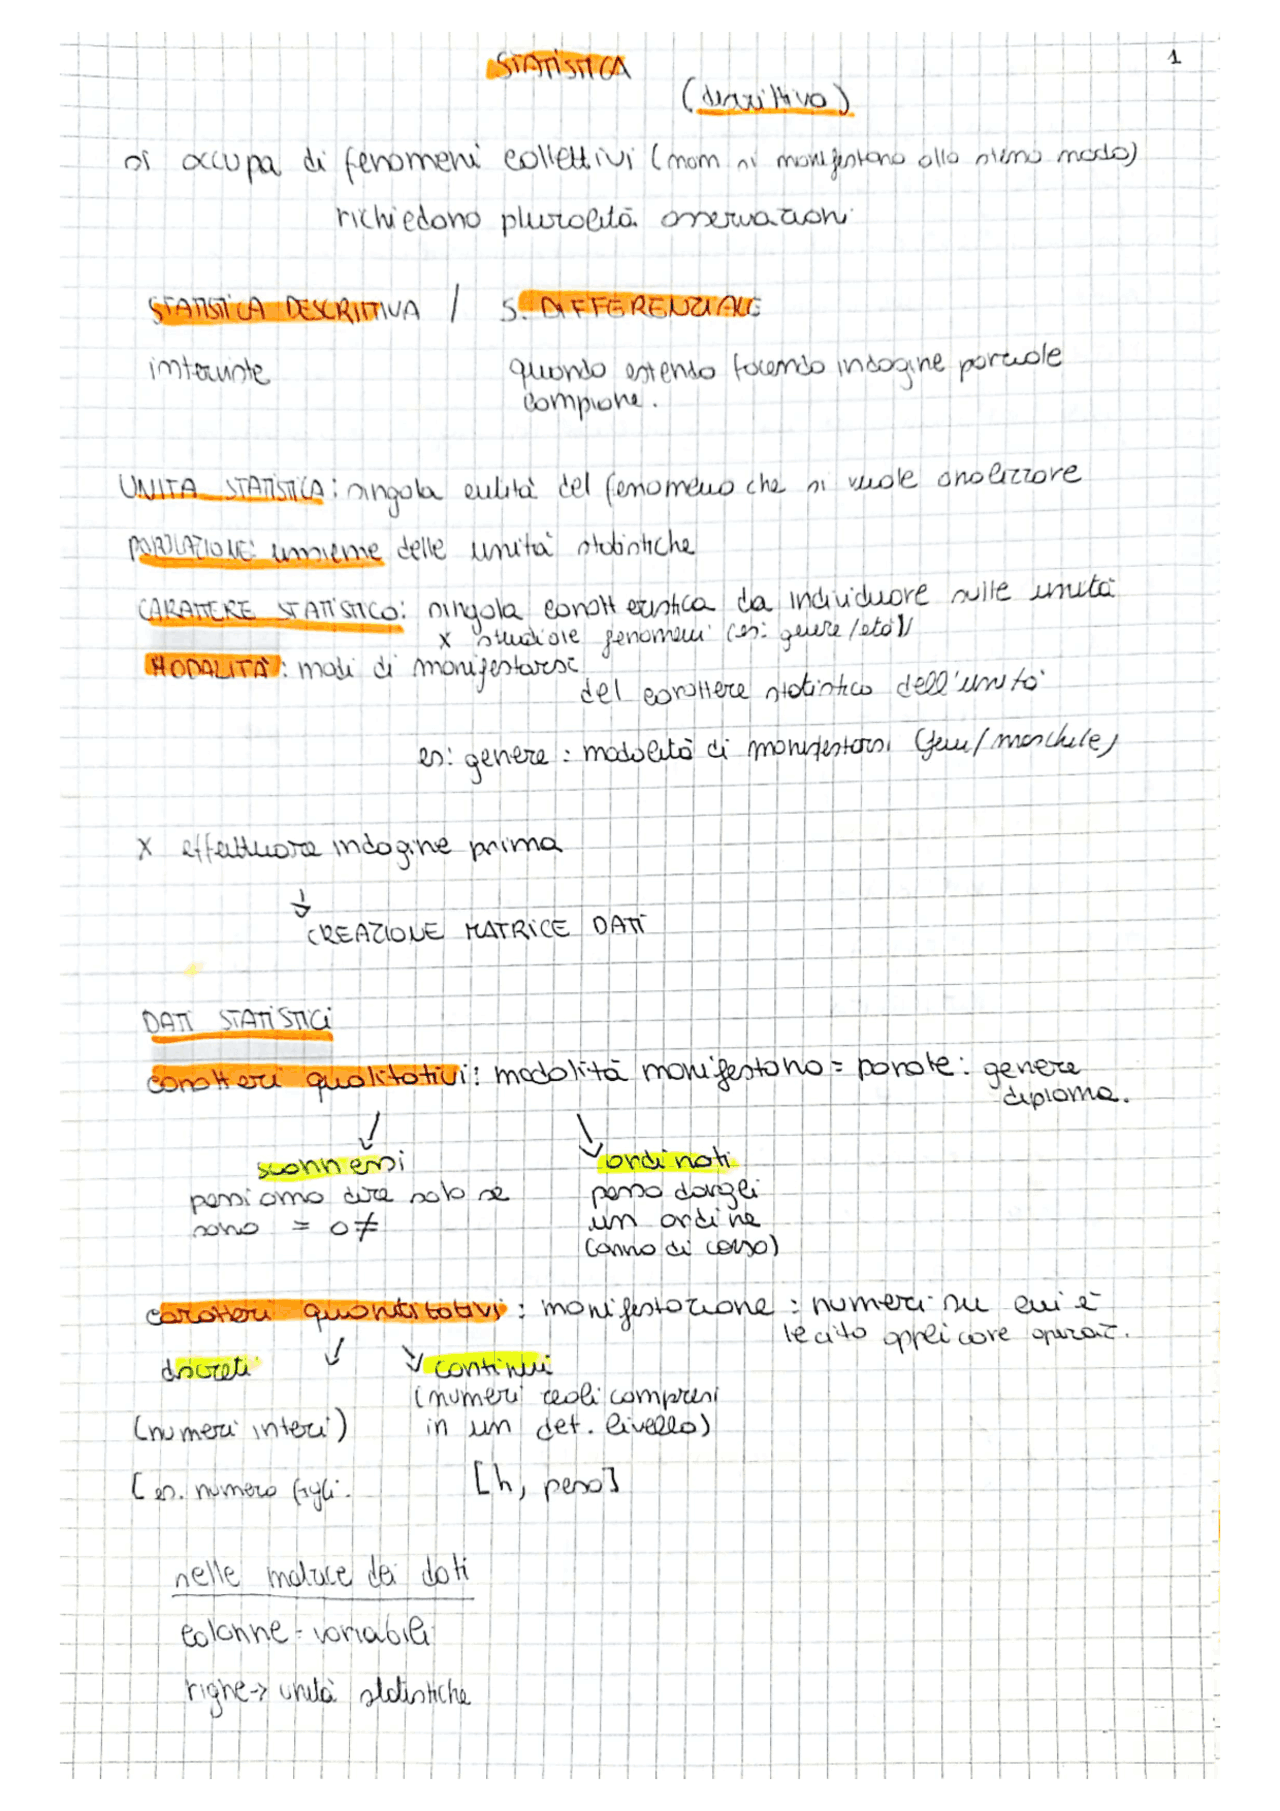 STATISTICA
1
(descrittiva)
si occupa di fenomeni collettivi (non si manifestano allo stesso modo)
richiedono pluralità osservazioni
STATISTICA DESCRITTIVA / S. DIFFERENZIALE
interviste
quando estendo facendo indagine parziale
campione.
UNITA STATISTICA: singola entità del fenomeno che si vuole analizzare
POPOLAZIONE: insieme delle unità statistiche
CARATTERE STATISTICO: singola caratteristica da individuare sulle unità
x studiare fenomeni (es: genere/età)
MODALITA': modi di manifestarsi
del carattere statistico dell'unità
es: genere: modalità di manifestarsi (fem/maschile)
x effettuare indagine prima
↓
CREAZIONE MATRICE DATI
DATI STATISTICI
caratteri qualitativi: modalità manifestano = parole: genere
diploma.
sconnessi
ordinati
possiamo dire solo se
sono = o ≠
posso dargli
un ordine
(anno di corso)
caratteri quantitativi: manifestazione: numeri su cui è
lecito applicare operaz.
discreti
continui
(numeri interi)
(numeri reali compresi
in un det. livello)
[es. numero figli.
[h, peso]
nelle matrice dei dati
colonne = variabili
righe → unità statistiche